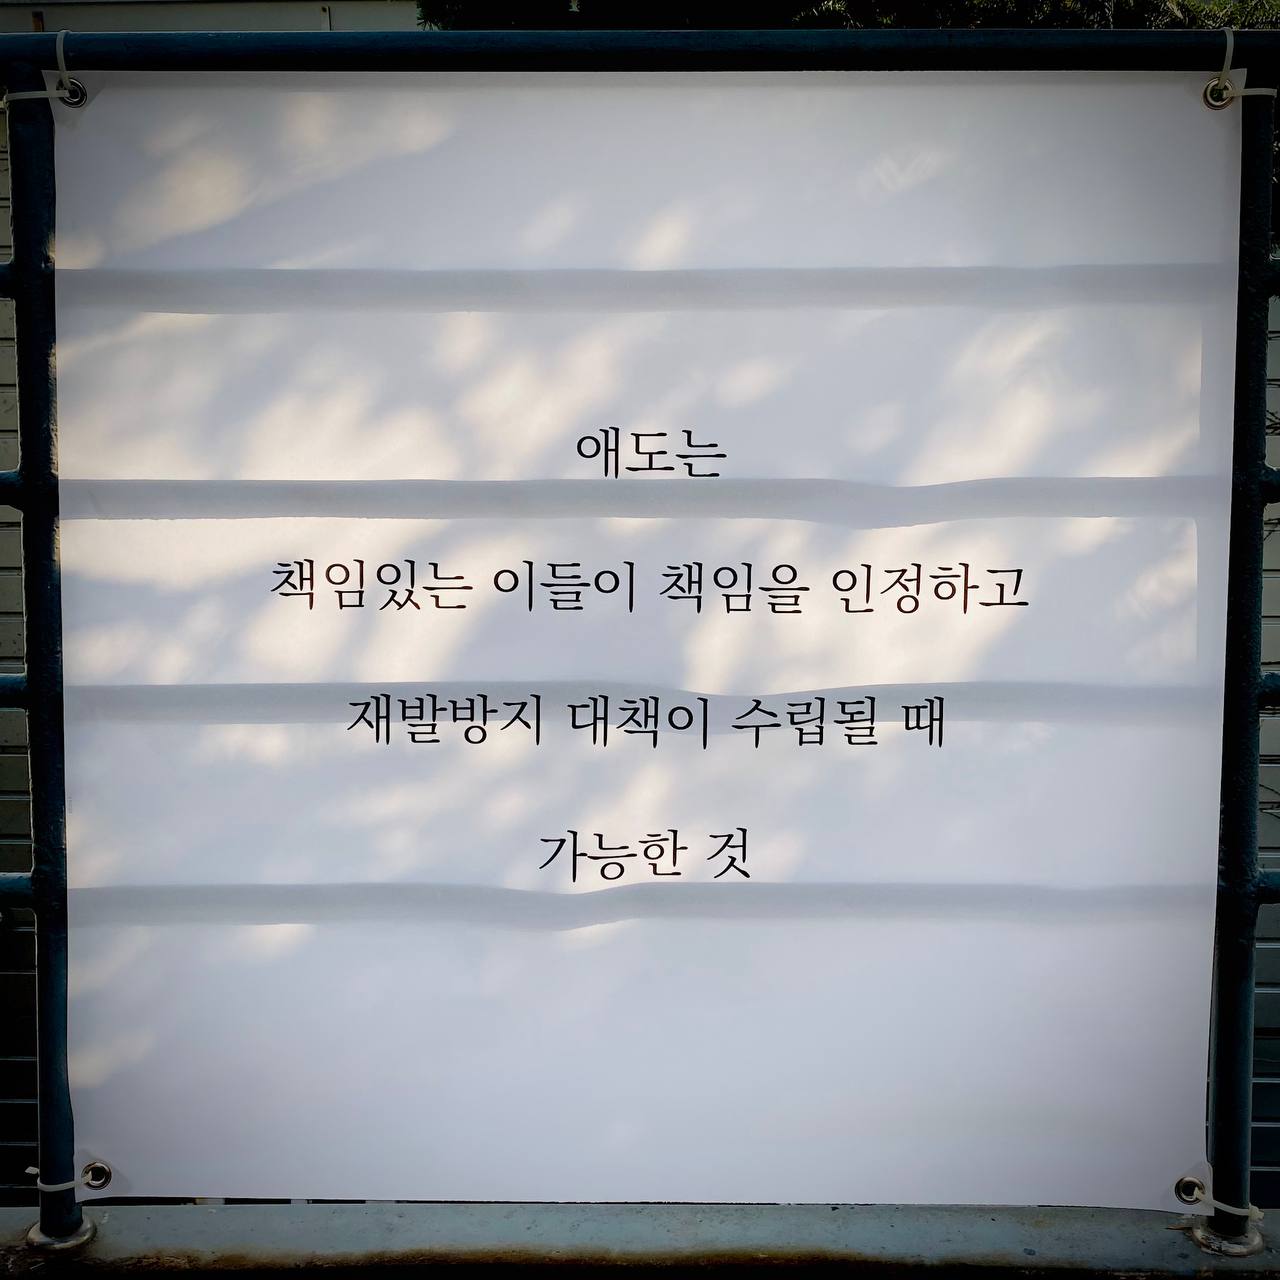 애도는
책임있는 이들이 책임을 인정하고
재발방지 대책이 수립될 때
가능한 것